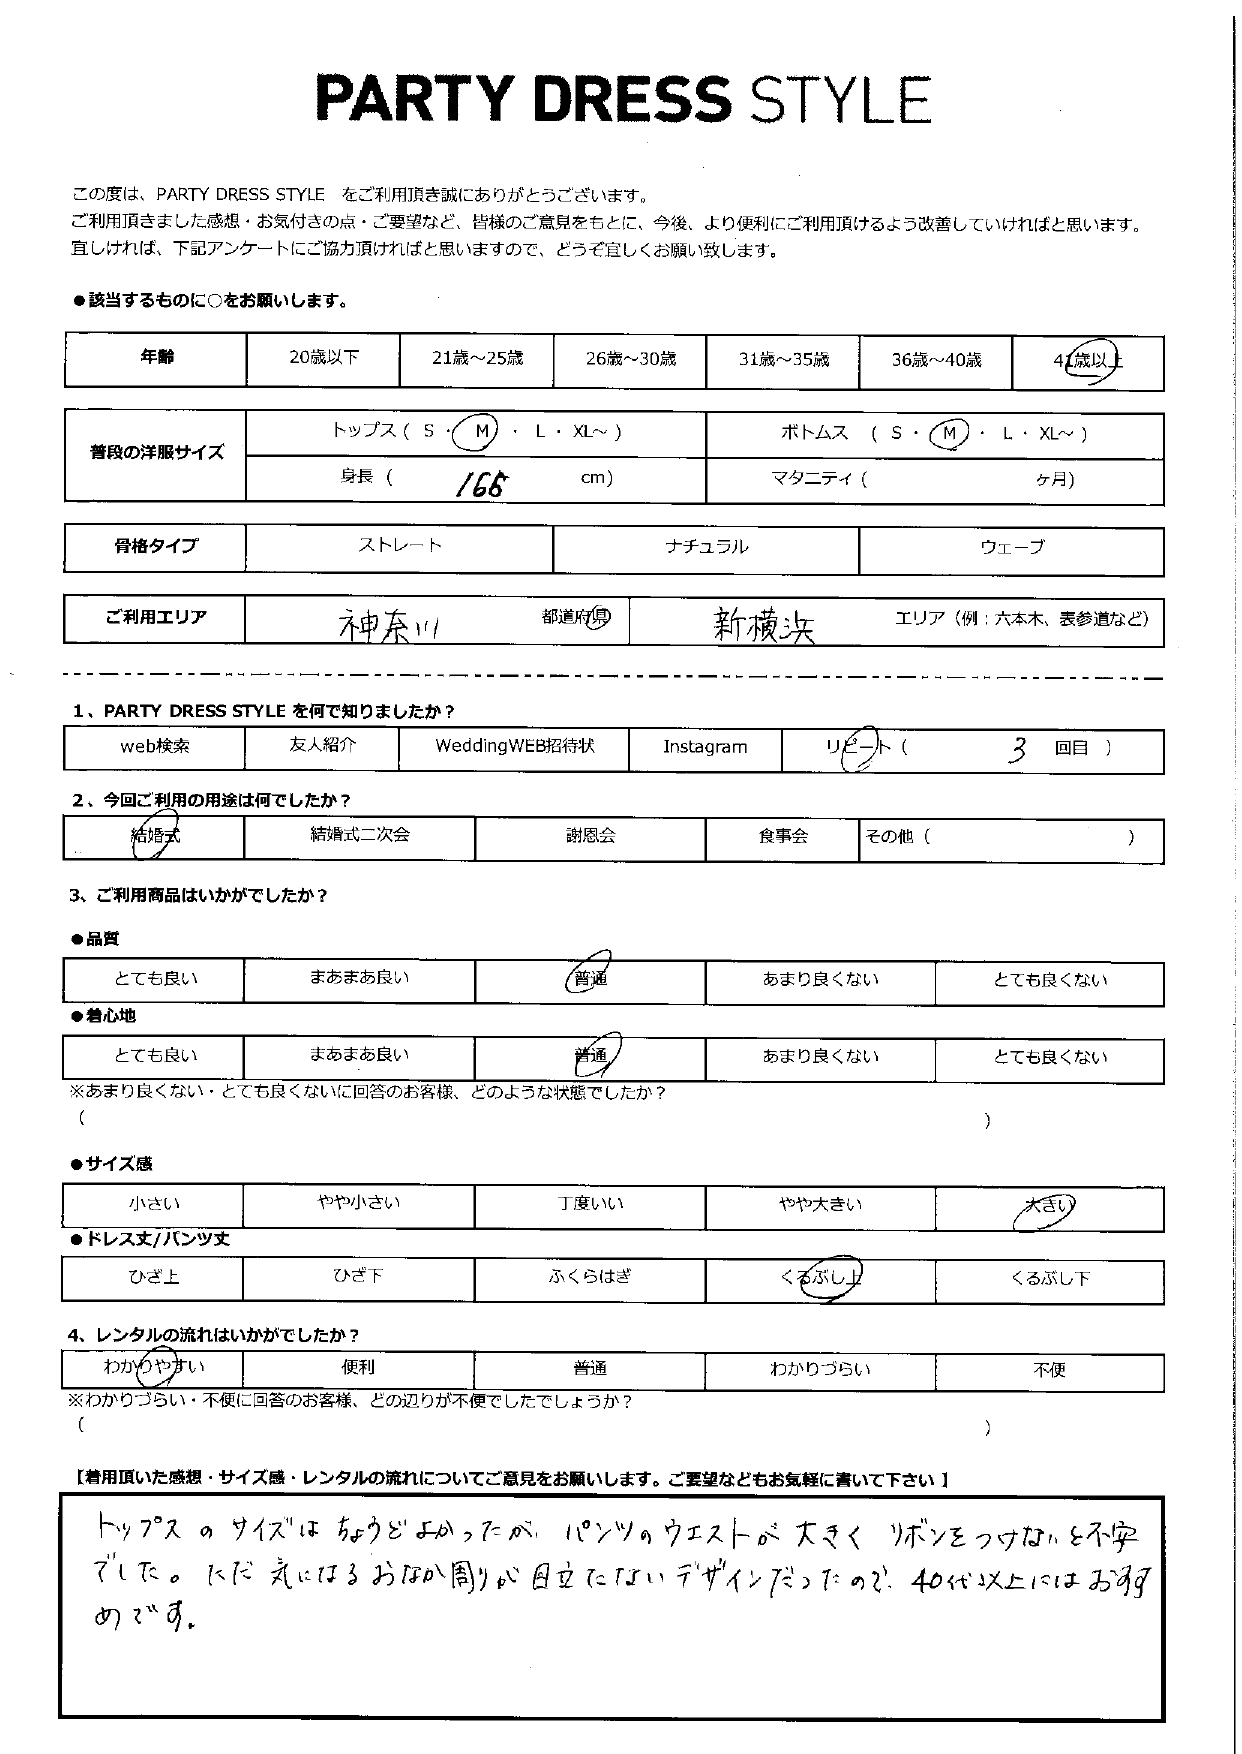 PARTY DRESS STYLE
この度は、PARTY DRESS STYLE をご利用頂き誠にありがとうございます。
ご利用頂きました感想・お気付きの点・ご要望など、皆様のご意見をもとに、今後、より便利にご利用頂けるよう改善していければと思います。
宜しければ、下記アンケートにご協力頂ければと思いますので、どうぞ宜しくお願い致します。
●該当するものに○をお願いします。
年齢 20歳以下 21歳～25歳 26歳～30歳 31歳～35歳 36歳～40歳 41歳以上
普段の洋服サイズ トップス ( S ・ M ・ L ・ XL～ ) ボトムス ( S ・ M ・ L ・ XL～ )
身長 ( 166 cm) マタニティ ( ヶ月)
骨格タイプ ストレート ナチュラル ウェーブ
ご利用エリア 神奈川 都道府県 新横浜 エリア（例：六本木、表参道など）
1、PARTY DRESS STYLE を何で知りましたか？
web検索 友人紹介 WeddingWEB招待状 Instagram リピート ( 3 回目 )
2、今回ご利用の用途は何でしたか？
結婚式 結婚式二次会 謝恩会 食事会 その他 ( )
3、ご利用商品はいかがでしたか？
●品質
とても良い まあまあ良い 普通 あまり良くない とても良くない
●着心地
とても良い まあまあ良い 普通 あまり良くない とても良くない
※あまり良くない・とても良くないに回答のお客様、どのような状態でしたか？
( )
●サイズ感
小さい やや小さい 丁度いい やや大きい 大きい
●ドレス丈/パンツ丈
ひざ上 ひざ下 ふくらはぎ くるぶし上 くるぶし下
4、レンタルの流れはいかがでしたか？
わかりやすい 便利 普通 わかりづらい 不便
※わかりづらい・不便に回答のお客様、どの辺りが不便でしたでしょうか？
( )
【着用頂いた感想・サイズ感・レンタルの流れについてご意見をお願いします。ご要望などもお気軽に書いて下さい】
トップスのサイズはちょうどよかったが、パンツのウエストが大きくリボンをつけないと不安
でした。ただ気になるおなか周りが目立たないデザインだったので、40代以上にはおすす
めです。